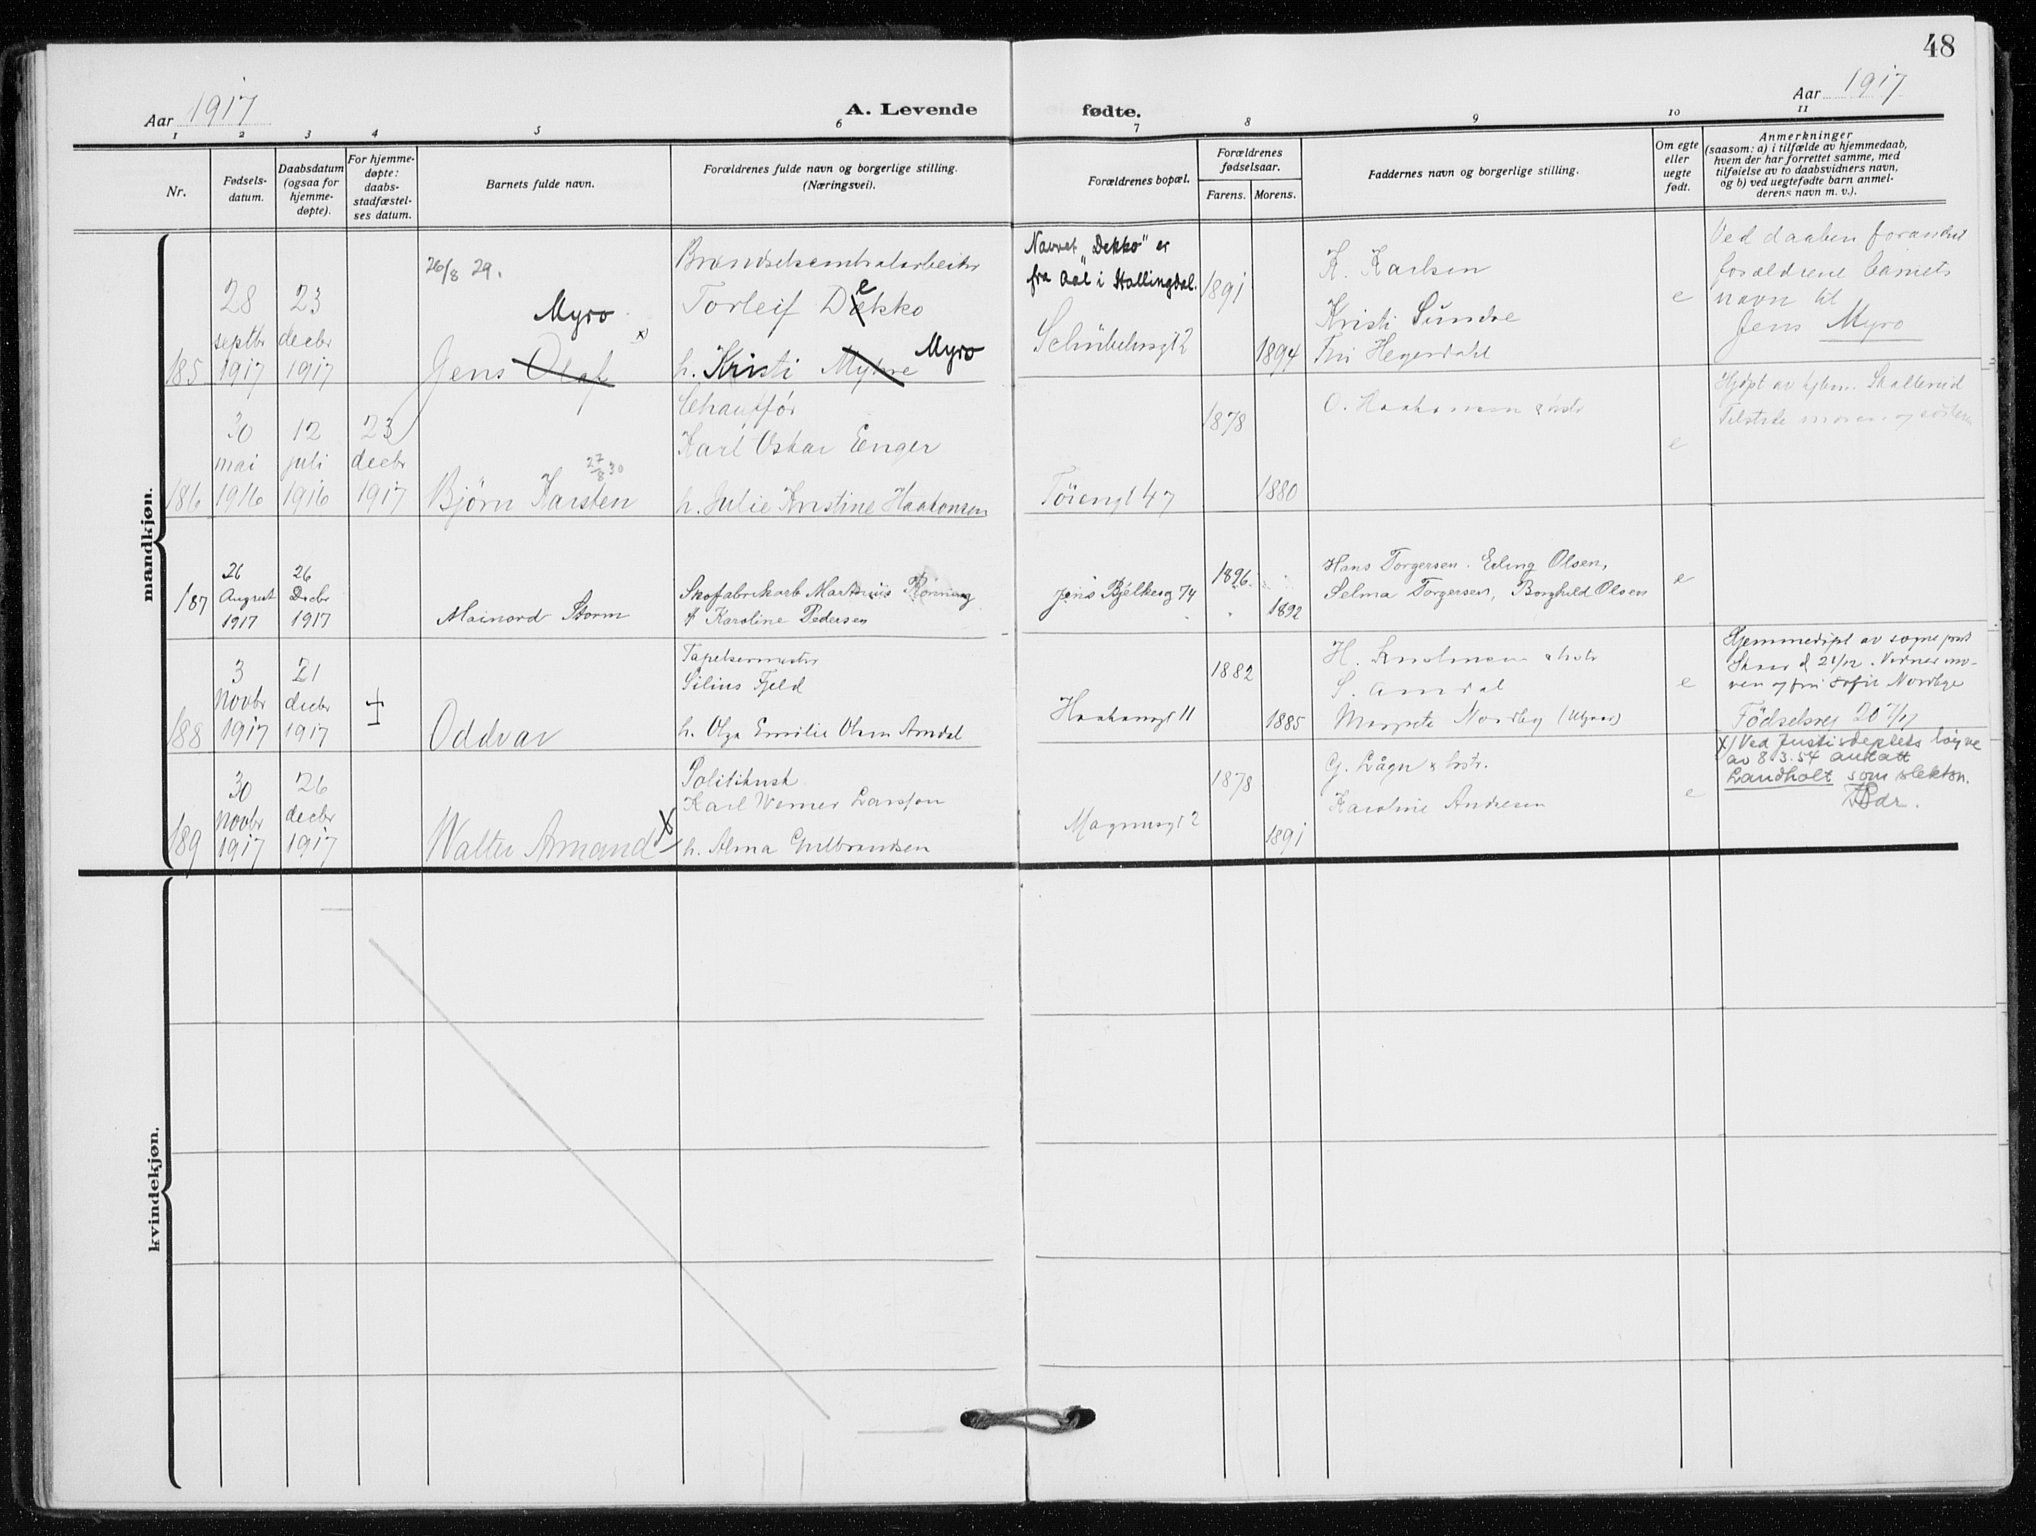 48
Aar 1917
A. Levende
fødte.
Aar 1917
1 2 3 4 5 6 7 8 9 10 11
Nr.
Fødsels-
datum.
Daabsdatum
(ogsaa for
hjemme-
døpte).
For hjemme-
døpte:
daabs-
stadfæstel-
ses datum.
Barnets fulde navn.
Forældrenes fulde navn og borgerlige stilling.
(Næringsvei).
Forældrenes bopæl.
Forældrenes
fødselsaar.
Farens. Morens.
Faddernes navn og borgerlige stilling.
Om egte
eller
uegte
født.
Anmerkninger
(saasom: a) i tilfælde av hjemmedaab,
hvem der har forrettet samme, med
tilføielse av to daabsvidners navn,
og b) ved uegtefødte barn anmel-
derens navn m. v.).
mandkjøn.
185
28
septbr
1917
23
decbr
1917
26/8 29.
Myro x
Jens Olaf
Torleif Dekko
h. Kristi Myhre Myro
Navnet "Dekko" er
fra Aal i Hallingdal.
1891
1894
K. Karlsen
Kristi Sundre
Fru Hegerdahl
e
Ved daaben forandret
forældrene barnets
navn til
Jens Myro
186
30
mai
1916
12
juli
1916
23
decbr
1917
27/8 30
Bjørn Karsten
Chauffør
Karl Oskar Enger
h. Julie Kristine Haakonsen
Töiengt 47
1878
1880
O. Haakonsen
e
187
26
August
1917
26
Decbr
1917
Mainord Storm
Skofabrikarb Martinius Rönning
h Karoline Pedersen
Jens Bjelkesg 74
1896
1892
Hans Torgersen. Erling Olsen,
Selma Torgersen, Borghild Olsen
e
188
3
Novbr
1917
21
decbr
1917
Oddvar
Tapetsermester
Silius Fjeld
h. Olga Emilie Olsen Amdal
Haakonsgt 11
1882
1885
S. Amdal
Margrete Nordby
e
Hjemmedøpt av sogneprest
189
30
Novbr
1917
26
decbr
1917
Walter Armand x
Politikusk
Karl Werner Larsson
h. Alma Gulbrandsen
Magnusgt 2
1878
1891
Karoline Andresen
e
x) Ved Justisdeptets løyve
av 8 3.54 antatt
Landholt som slektsn.
kvindekjøn.